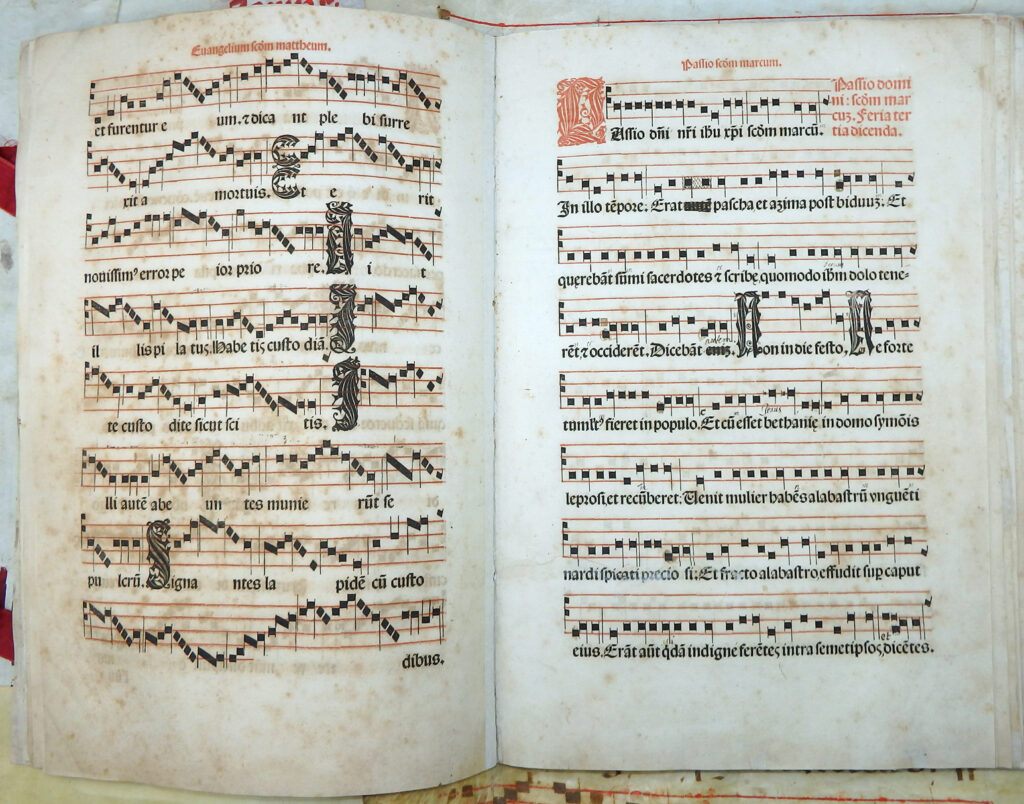 Euangelium scḋm mattheum.
et furentur e um. ⁊ dica nt ple bi surre
xit a mortuis. Et e rit
nouissim⁹ error pe ior prio re. A i t
il lis pi la tus. Habe tis custo diā. I
te custo dite sicut sci tis. I
lli autē abe un tes munie rūt se
pu lcrū. Signa ntes la pidē cū custo
dibus.
Passio scḋm marcum.
Passio domi
ni: scḋm mar
cuʒ. Feria ter
tia dicenda.
PAssio dn̄i nr̄i ihu xp̄i scḋm marcū.
In illo tēpore: Erat autē pascha et azima post biduuʒ. Et
quęrebāt sūmi sacerdotes ⁊ scribę, quomodo ihm̄ dolo tene-
rēt, ⁊ occiderēt. Dicebāt Non in die festo, Ne forte
tumult⁹ fieret in populo. Et cū esset bethanię in domo symōis
leprosi, et recūberet: Uenit mulier habēs alabastrū vnguēti
nardi spicati precio si: Et fracto alabastro, effudit sup̱ caput
et
eius. Erāt aūt q̇dā indigne ferētes intra semetipsos, dicētes.